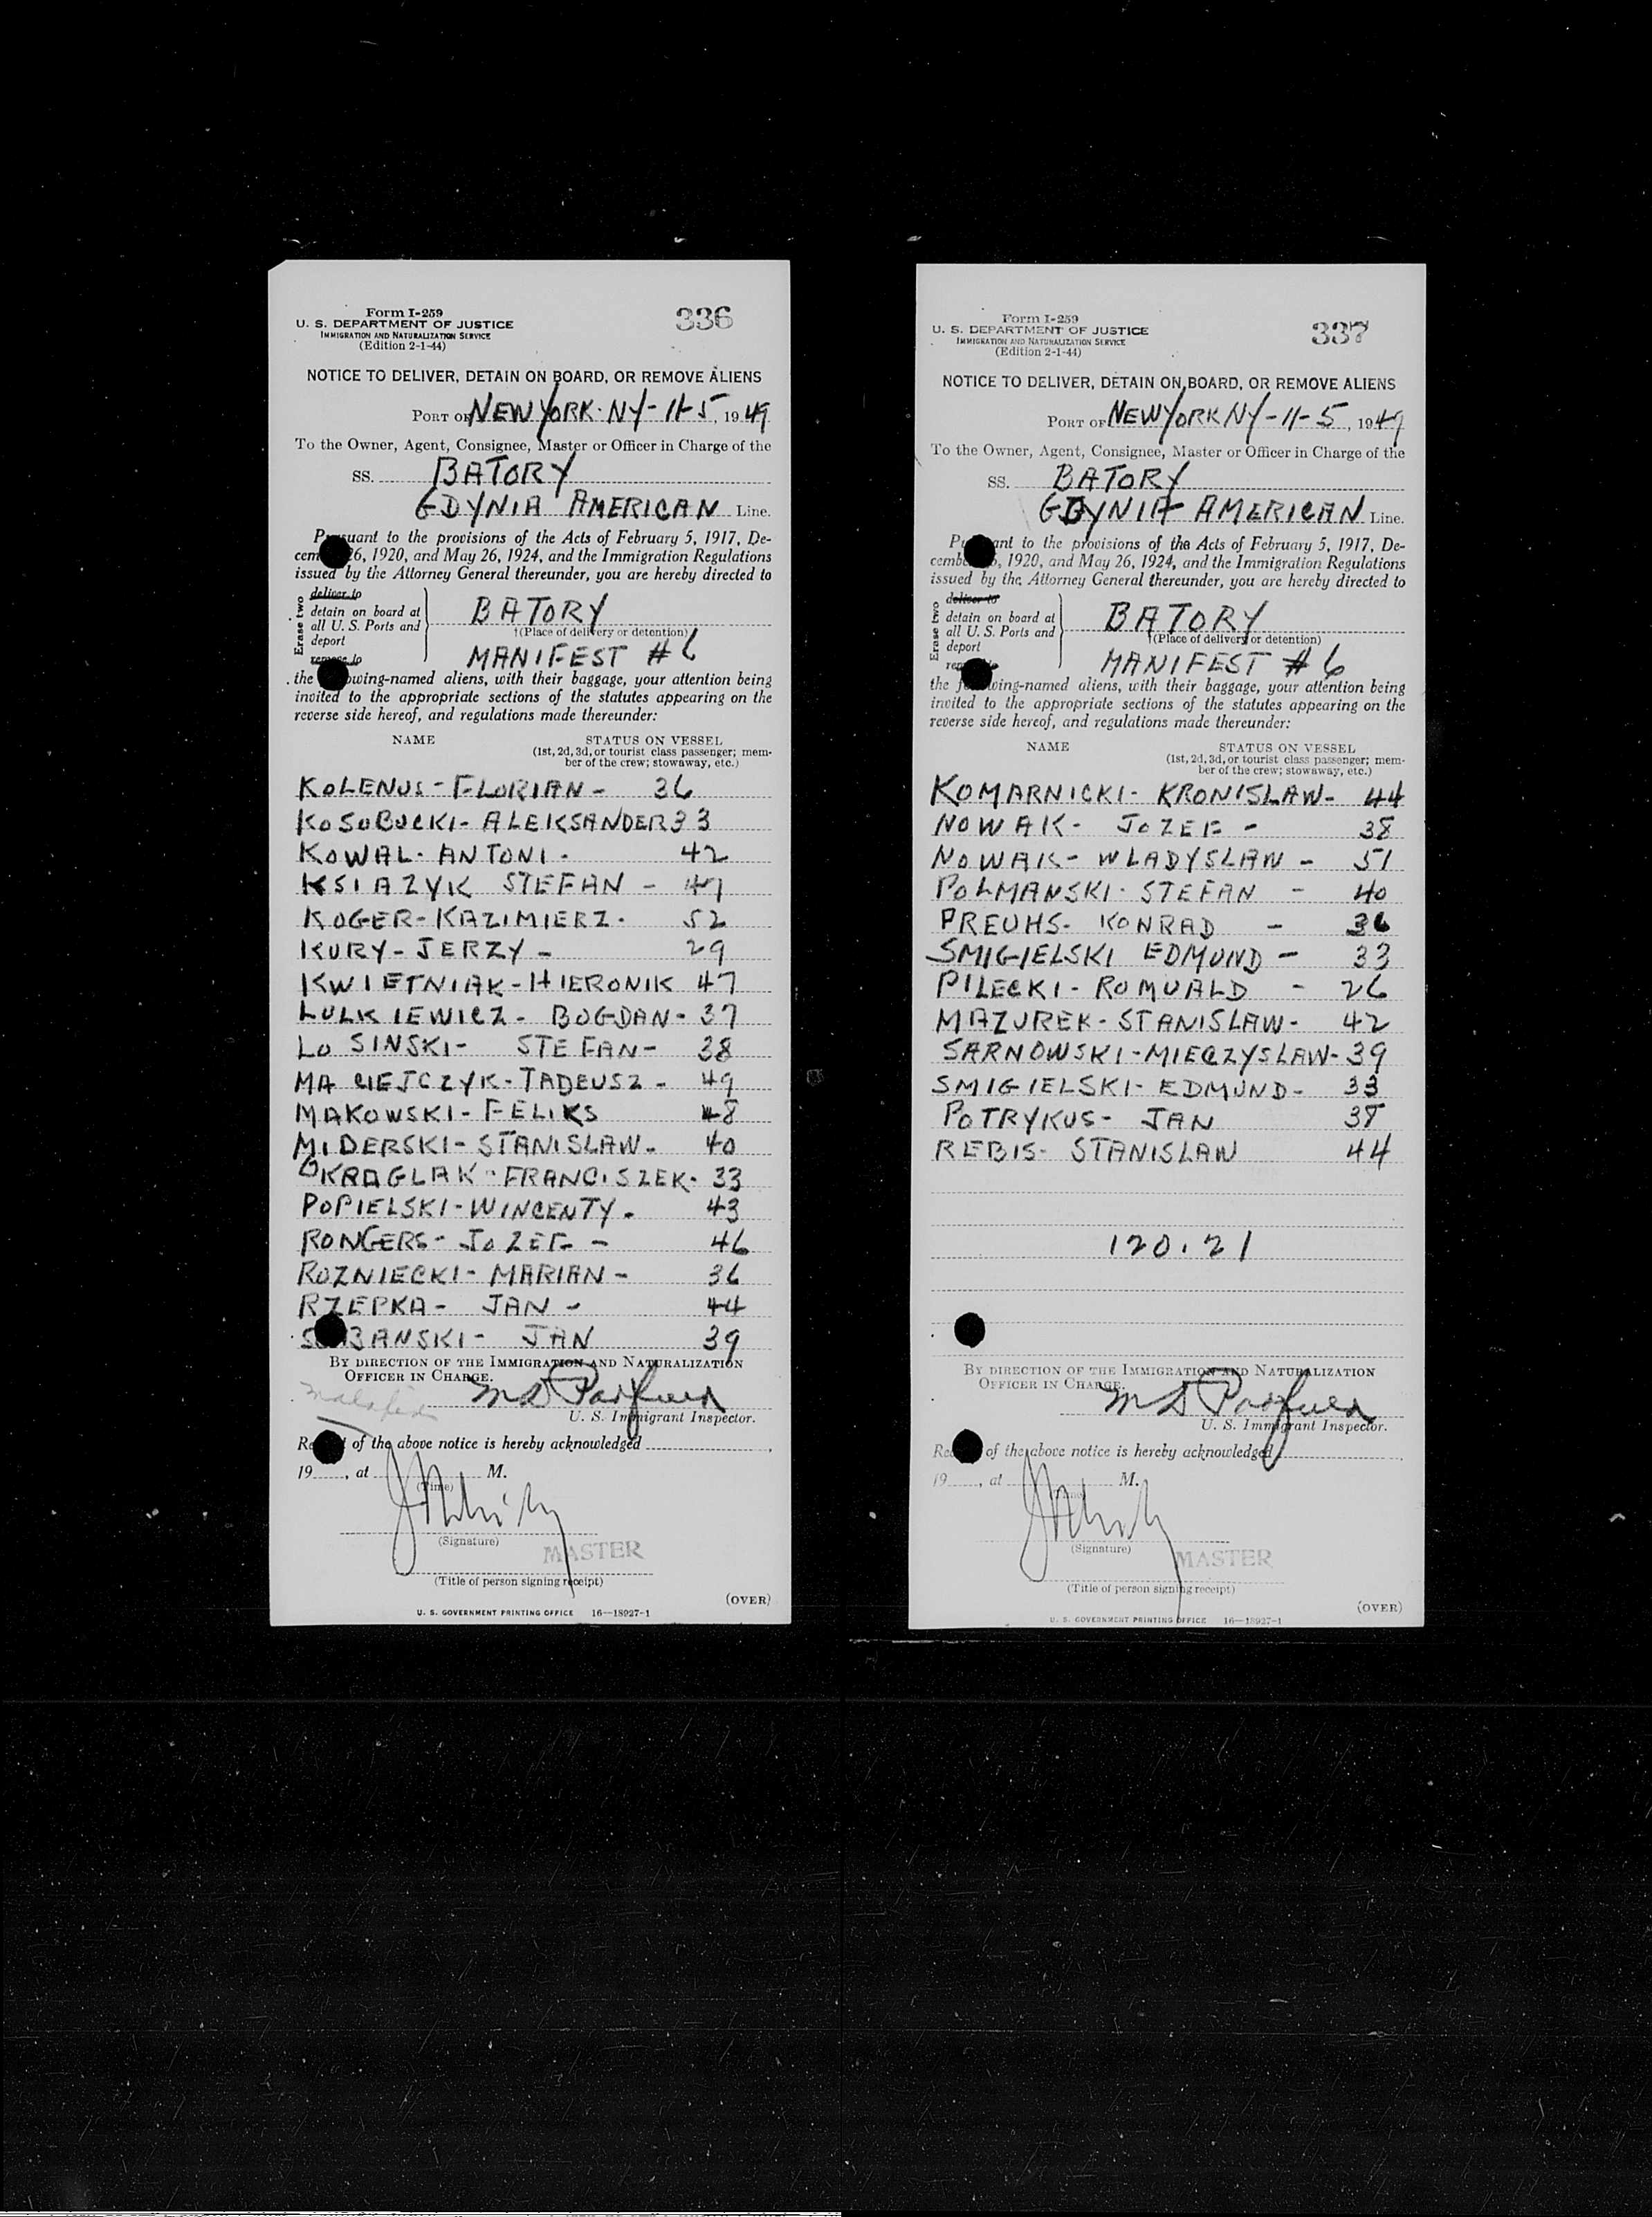 Form I-259
U. S. DEPARTMENT OF JUSTICE
IMMIGRATION AND NATURALIZATION SERVICE
(Edition 2-1-44)
336
NOTICE TO DELIVER, DETAIN ON BOARD, OR REMOVE ALIENS
PORT OF NEW YORK. NY - 11-5, 1949
To the Owner, Agent, Consignee, Master or Officer in Charge of the
SS. BATORY
GDYNIA AMERICAN Line.
Pursuant to the provisions of the Acts of February 5, 1917, De-
cem 26, 1920, and May 26, 1924, and the Immigration Regulations
issued by the Attorney General thereunder, you are hereby directed to
Erase two
deliver to
detain on board at
all U. S. Ports and
deport
remove to
BATORY
†(Place of delivery or detention)
MANIFEST # 6
the following-named aliens, with their baggage, your attention being
invited to the appropriate sections of the statutes appearing on the
reverse side hereof, and regulations made thereunder:
NAME STATUS ON VESSEL
(1st, 2d, 3d, or tourist class passenger; mem-
ber of the crew; stowaway, etc.)
KOLENUS - FLORIAN - 36
KOSOBUCKI - ALEKSANDER 33
KOWAL - ANTONI - 42
KSIAZYK STEFAN - 47
KOGER - KAZIMIERZ - 52
KURY - JERZY - 29
KWIETNIAK - HIERONIK 47
LULKIEWICZ - BOGDAN - 37
LOSINSKI - STEFAN - 38
MACIEJCZYK - TADEUSZ - 49
MAKOWSKI - FELIKS 48
MIDERSKI - STANISLAW - 40
OKRAGLAK - FRANCISZEK - 33
POPIELSKI - WINCENTY - 43
RONGERS - JOZEF - 46
ROZNIECKI - MARIAN - 36
RZEPKA - JAN - 44
S BANSKI - JAN 39
BY DIRECTION OF THE IMMIGRATION AND NATURALIZATION
OFFICER IN CHARGE.
U. S. Immigrant Inspector.
Receipt of the above notice is hereby acknowledged
19 , at M.
(Time)
(Signature)
MASTER
(Title of person signing receipt)
(OVER)
U. S. GOVERNMENT PRINTING OFFICE 16—18927-1
Form I-259
U. S. DEPARTMENT OF JUSTICE
IMMIGRATION AND NATURALIZATION SERVICE
(Edition 2-1-44)
337
NOTICE TO DELIVER, DETAIN ON BOARD, OR REMOVE ALIENS
PORT OF NEW YORK NY - 11-5, 1949
To the Owner, Agent, Consignee, Master or Officer in Charge of the
SS. BATORY
GDYNIA AMERICAN Line.
Pursuant to the provisions of the Acts of February 5, 1917, De-
cember 26, 1920, and May 26, 1924, and the Immigration Regulations
issued by the Attorney General thereunder, you are hereby directed to
Erase two
deliver to
detain on board at
all U. S. Ports and
deport
remove to
BATORY
†(Place of delivery or detention)
MANIFEST # 6
the following-named aliens, with their baggage, your attention being
invited to the appropriate sections of the statutes appearing on the
reverse side hereof, and regulations made thereunder:
NAME STATUS ON VESSEL
(1st, 2d, 3d, or tourist class passenger; mem-
ber of the crew; stowaway, etc.)
KOMARNICKI - KRONISLAW - 44
NOWAK - JOZEF - 38
NOWAK - WLADYSLAW - 51
POLMANSKI - STEFAN - 40
PREUHS - KONRAD - 36
SMIGIELSKI EDMUND - 33
PILECKI - ROMUALD - 26
MAZUREK - STANISLAW - 42
SARNOWSKI - MIECZYSLAW - 39
SMIGIELSKI - EDMUND - 33
POTRYKUS - JAN 38
REBIS - STANISLAW 44
120.21
BY DIRECTION OF THE IMMIGRATION AND NATURALIZATION
OFFICER IN CHARGE.
U. S. Immigrant Inspector.
Receipt of the above notice is hereby acknowledged
19 , at M.
(Time)
(Signature)
MASTER
(Title of person signing receipt)
(OVER)
U. S. GOVERNMENT PRINTING OFFICE 16—18927-1